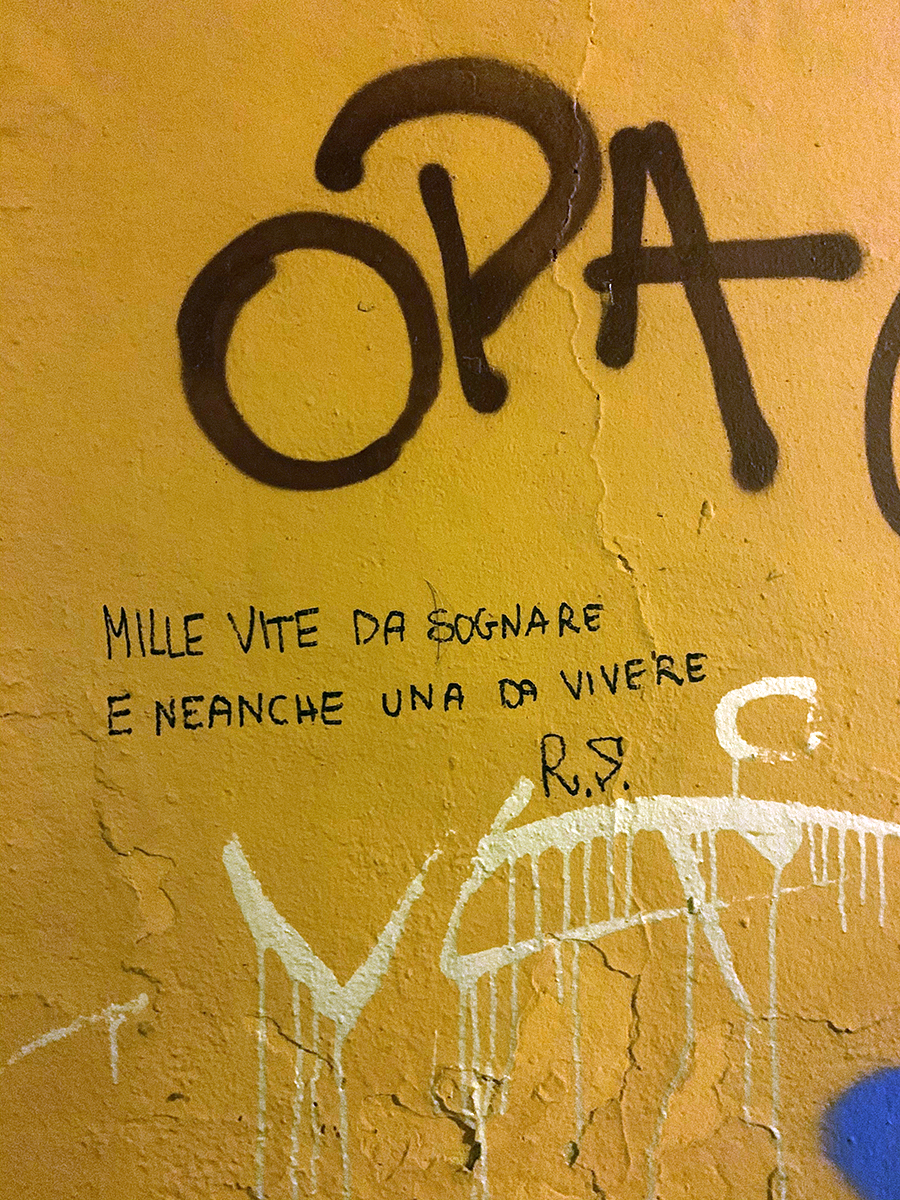 OPA
MILLE VITE DA SOGNARE
E NEANCHE UNA DA VIVERE
R.S.